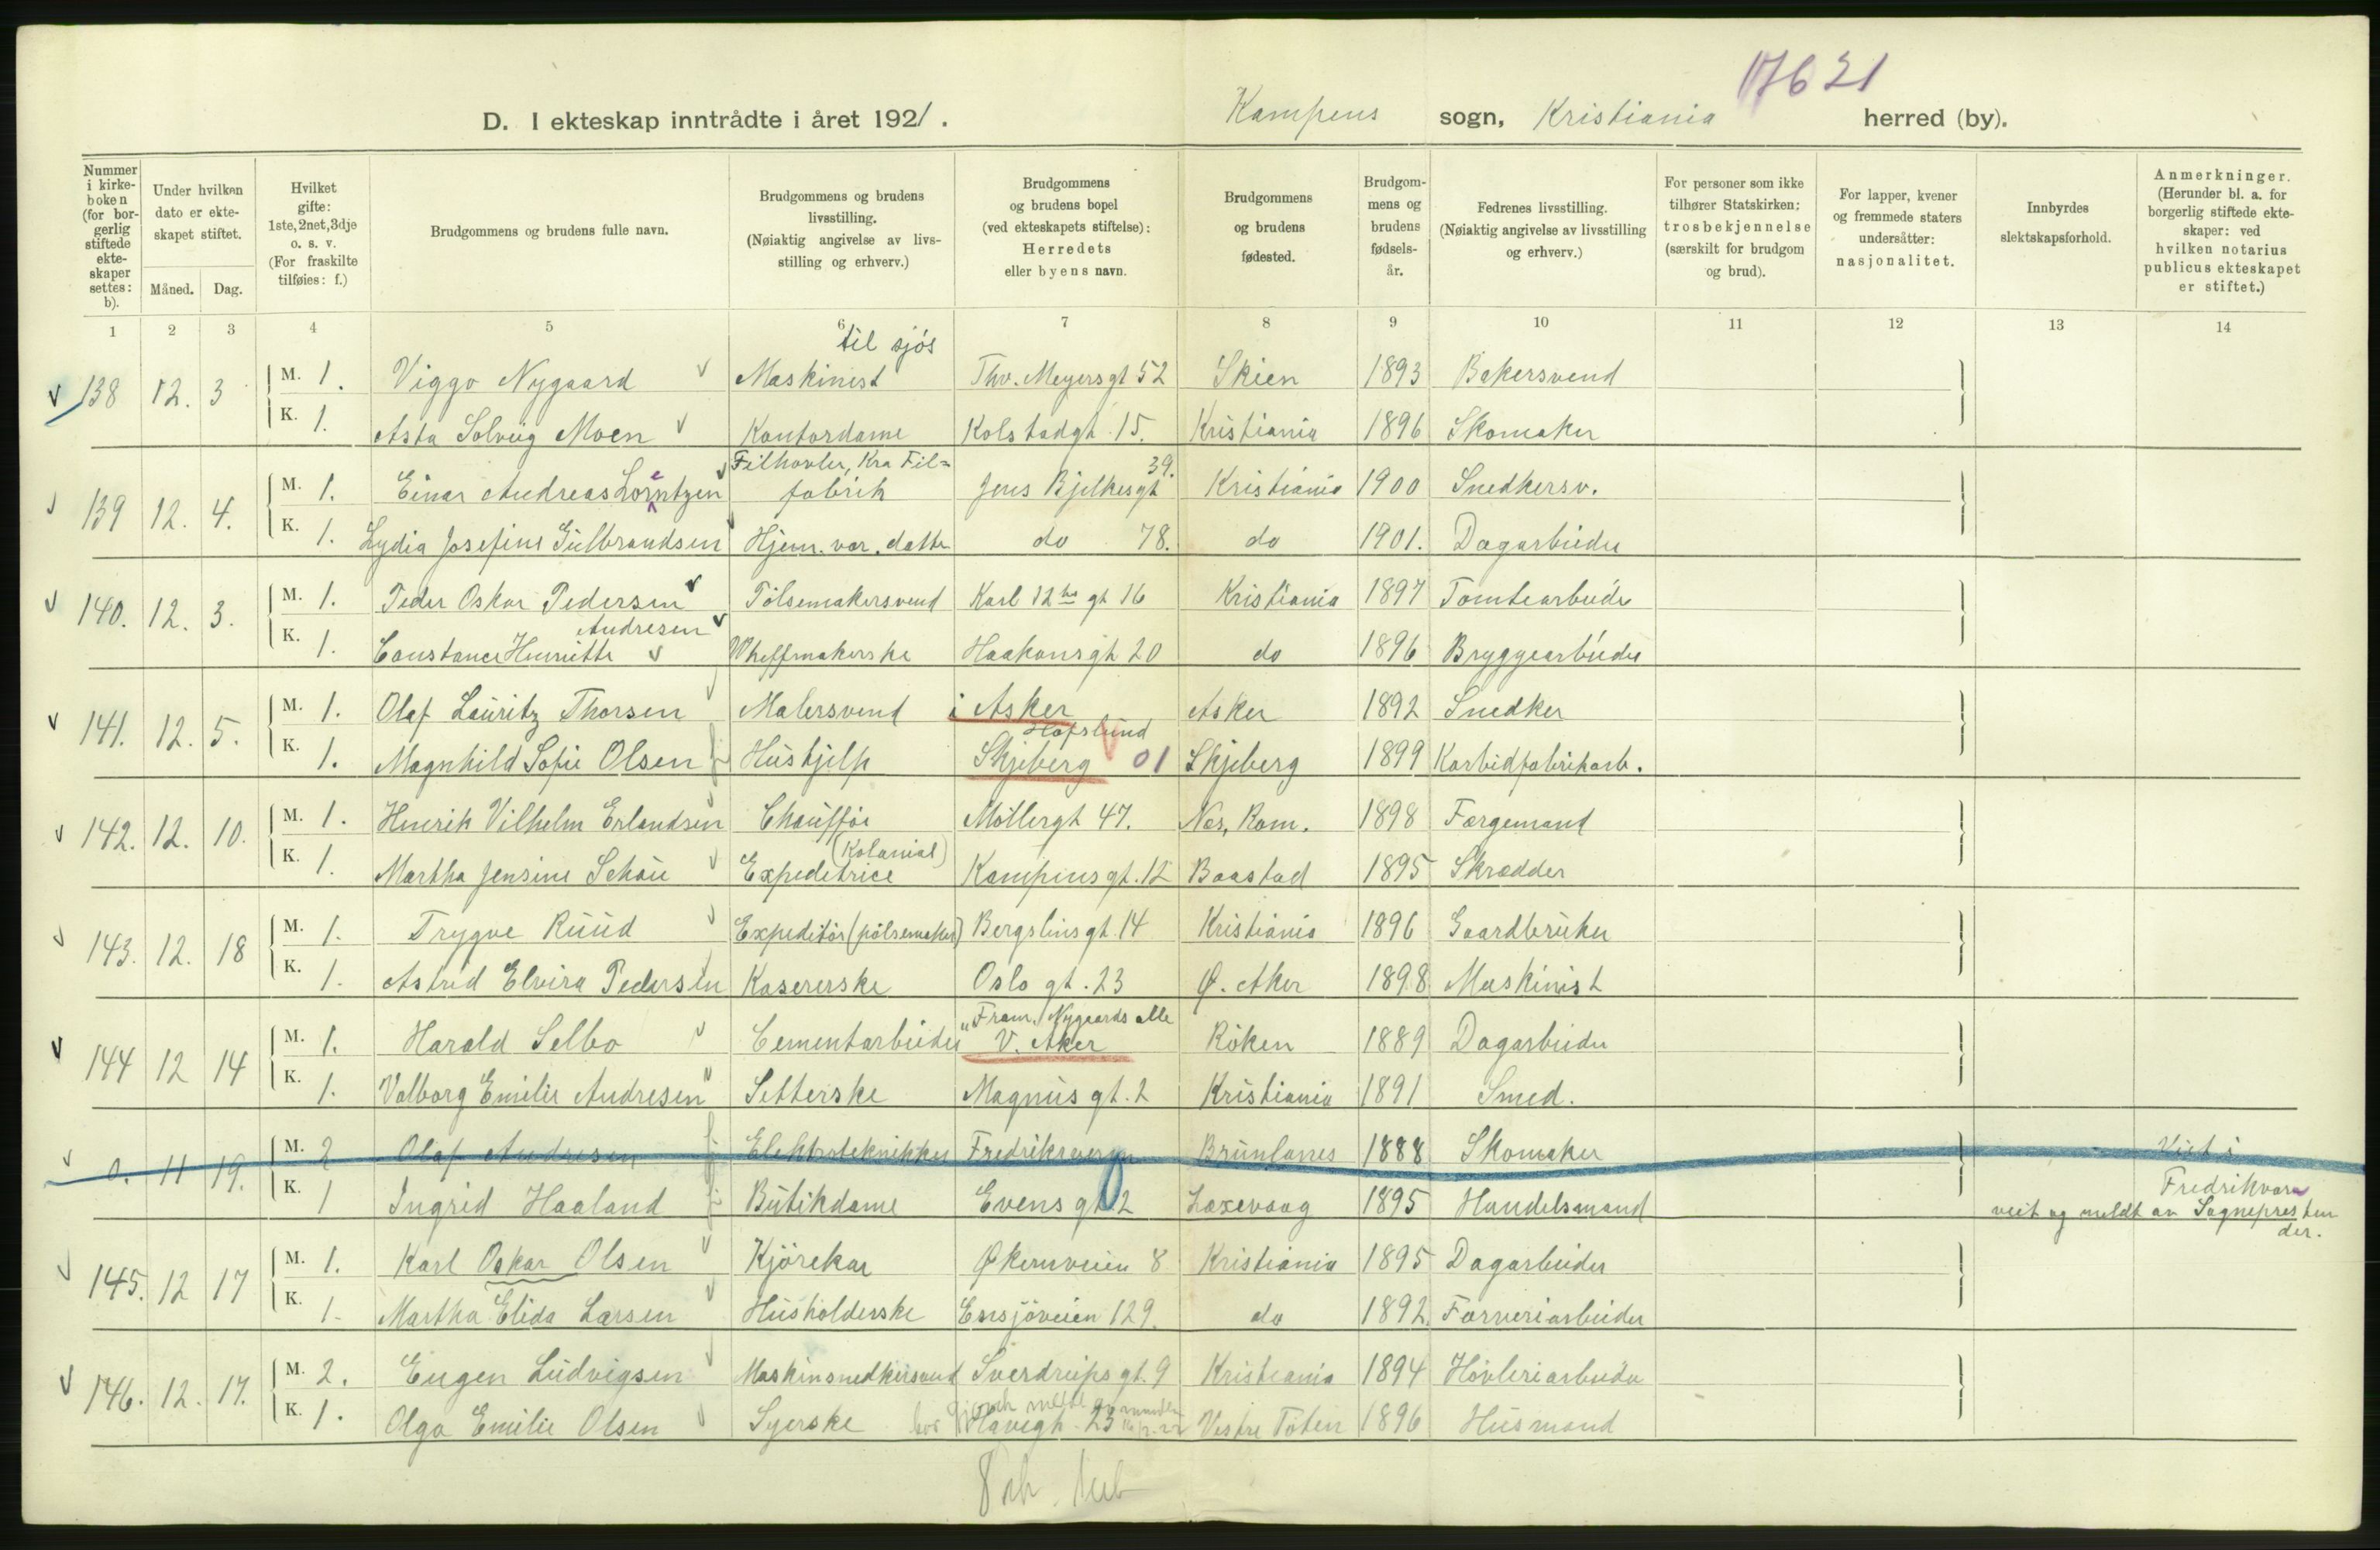 17621
D. I ekteskap inntrådte i året 1921. Kampens sogn, Kristiania herred (by).
Nummer i kirkeboken (for borgerlig stiftede ekteskaper settes: b).
Under hvilken dato er ekteskapet stiftet.
Måned. Dag.
Hvilket gifte: 1ste, 2net, 3dje o. s. v. (For fraskilte tilføies: f.)
Brudgommens og brudens fulle navn.
Brudgommens og brudens livsstilling. (Nøiaktig angivelse av livsstilling og erhverv.)
Brudgommens og brudens bopel (ved ekteskapets stiftelse): Herredets eller byens navn.
Brudgommens og brudens fødested.
Brudgommens og brudens fødselsår.
Fedrenes livsstilling. (Nøiaktig angivelse av livsstilling og erhverv.)
For personer som ikke tilhører Statskirken; trosbekjennelse (særskilt for brudgom og brud).
For lapper, kvener og fremmede staters undersåtter: nasjonalitet.
Innbyrdes slektskapsforhold.
Anmerkninger. (Herunder bl. a. for borgerlig stiftede ekteskaper: ved hvilken notarius publicus ekteskapet er stiftet.)
1 2 3 4 5 6 7 8 9 10 11 12 13 14
til sjós
138 12. 3 M. 1. Viggo Nygaard Maskinist Thv. Meyersgt 52 Skien 1893 Bakersvend
K. 1. Asta Solveig Moen Kontordame Kolstadgt 15. Kristiania 1896 Skomaker
Filhovler, Kra Fil=
139 12. 4. M. 1. Einar Andreas Lorentzen fabrik Jens Bjelkesgt 39. Kristiania 1900 Snedkersv.
K. 1. Lydia Josefine Gulbrandsen Hjem. vær. datter do 78. do 1901. Dagarbeider
140. 12. 3. M. 1. Peder Oskar Pedersen Pölsemakersvend Karl 12tes gt 16 Kristiania 1897 Tomtearbeider
Andresen
K. 1. Constance Henriette Vheffmakerske Haakonsgt 20 do 1896 Bryggearbeider
141. 12. 5. M. 1. Olaf Lauritz Thorsen Malersvend i Asker Asker 1892 Snedker
Hafslund
K. 1. Magnhild Sofie Olsen Hushjelp Skjeberg 01 Skjeberg 1899 Karbidfabrikarb.
142. 12. 10. M. 1. Henrik Vilhelm Erlandsen Chauffør Möllergt 47. Nes, Rom. 1898 Færgemand
(Kolonial)
K. 1. Martha Jensine Schau Expeditrice Kampensgt. 12 Baastad 1895 Skrædder
143. 12. 18 M. 1. Trygve Ruud Expeditör (pölsemaker) Bergsliensgt. 14 Kristiania 1896 Gaardbruker
K. 1. Astrid Elvira Pedersen Kasererske Oslo gt. 23 Ø. Aker 1898 Maskinist
"Fram, Nygaards alle
144 12 14 M. 1. Harald Selbo Cementarbeider V. Aker Röken 1889 Dagarbeider
K. 1. Valborg Emilie Andresen Setterske Magnus gt. 2 Kristiania 1891 Smed.
0. 11 19. M. 2 Olaf Andresen Elektrotekniker Fredriksværn Brunlanes 1888 Skomaker Viet i
K. 1 Ingrid Haaland Butikdame Evens gt 2 Laxevaag 1895 Handelsmand Fredriksvern
viet og meldt av Sognepresten
der.
145. 12 17 M. 1. Karl Oskar Olsen Kjörekar Økernveien 8 Kristiania 1895 Dagarbeider
K. 1. Martha Elida Larsen Husholderske Ensjöveien 129. do 1892. Farveriarbeider
146. 12. 17. M. 2. Eugen Ludvigsen Maskinsnedkersvend Sverdrups gt. 9 Kristiania 1894 Hövleriarbeider
K. 1. Olga Emilie Olsen Syerske Havegt. 23 Vestre Toten 1896 Husmand